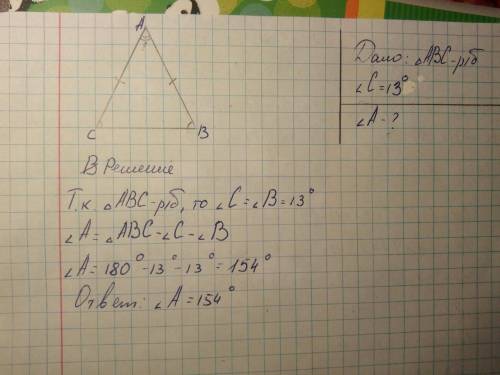 A
?
C
B
Дано: △ABC-р/б
∠C=13°
∠A-?
В Решение
Т.к △ABC-р/б, то ∠C=∠B=13°
∠A=△ABC-∠C-∠B
∠A=180°-13°-13°=154°
Ответ: ∠A=154°